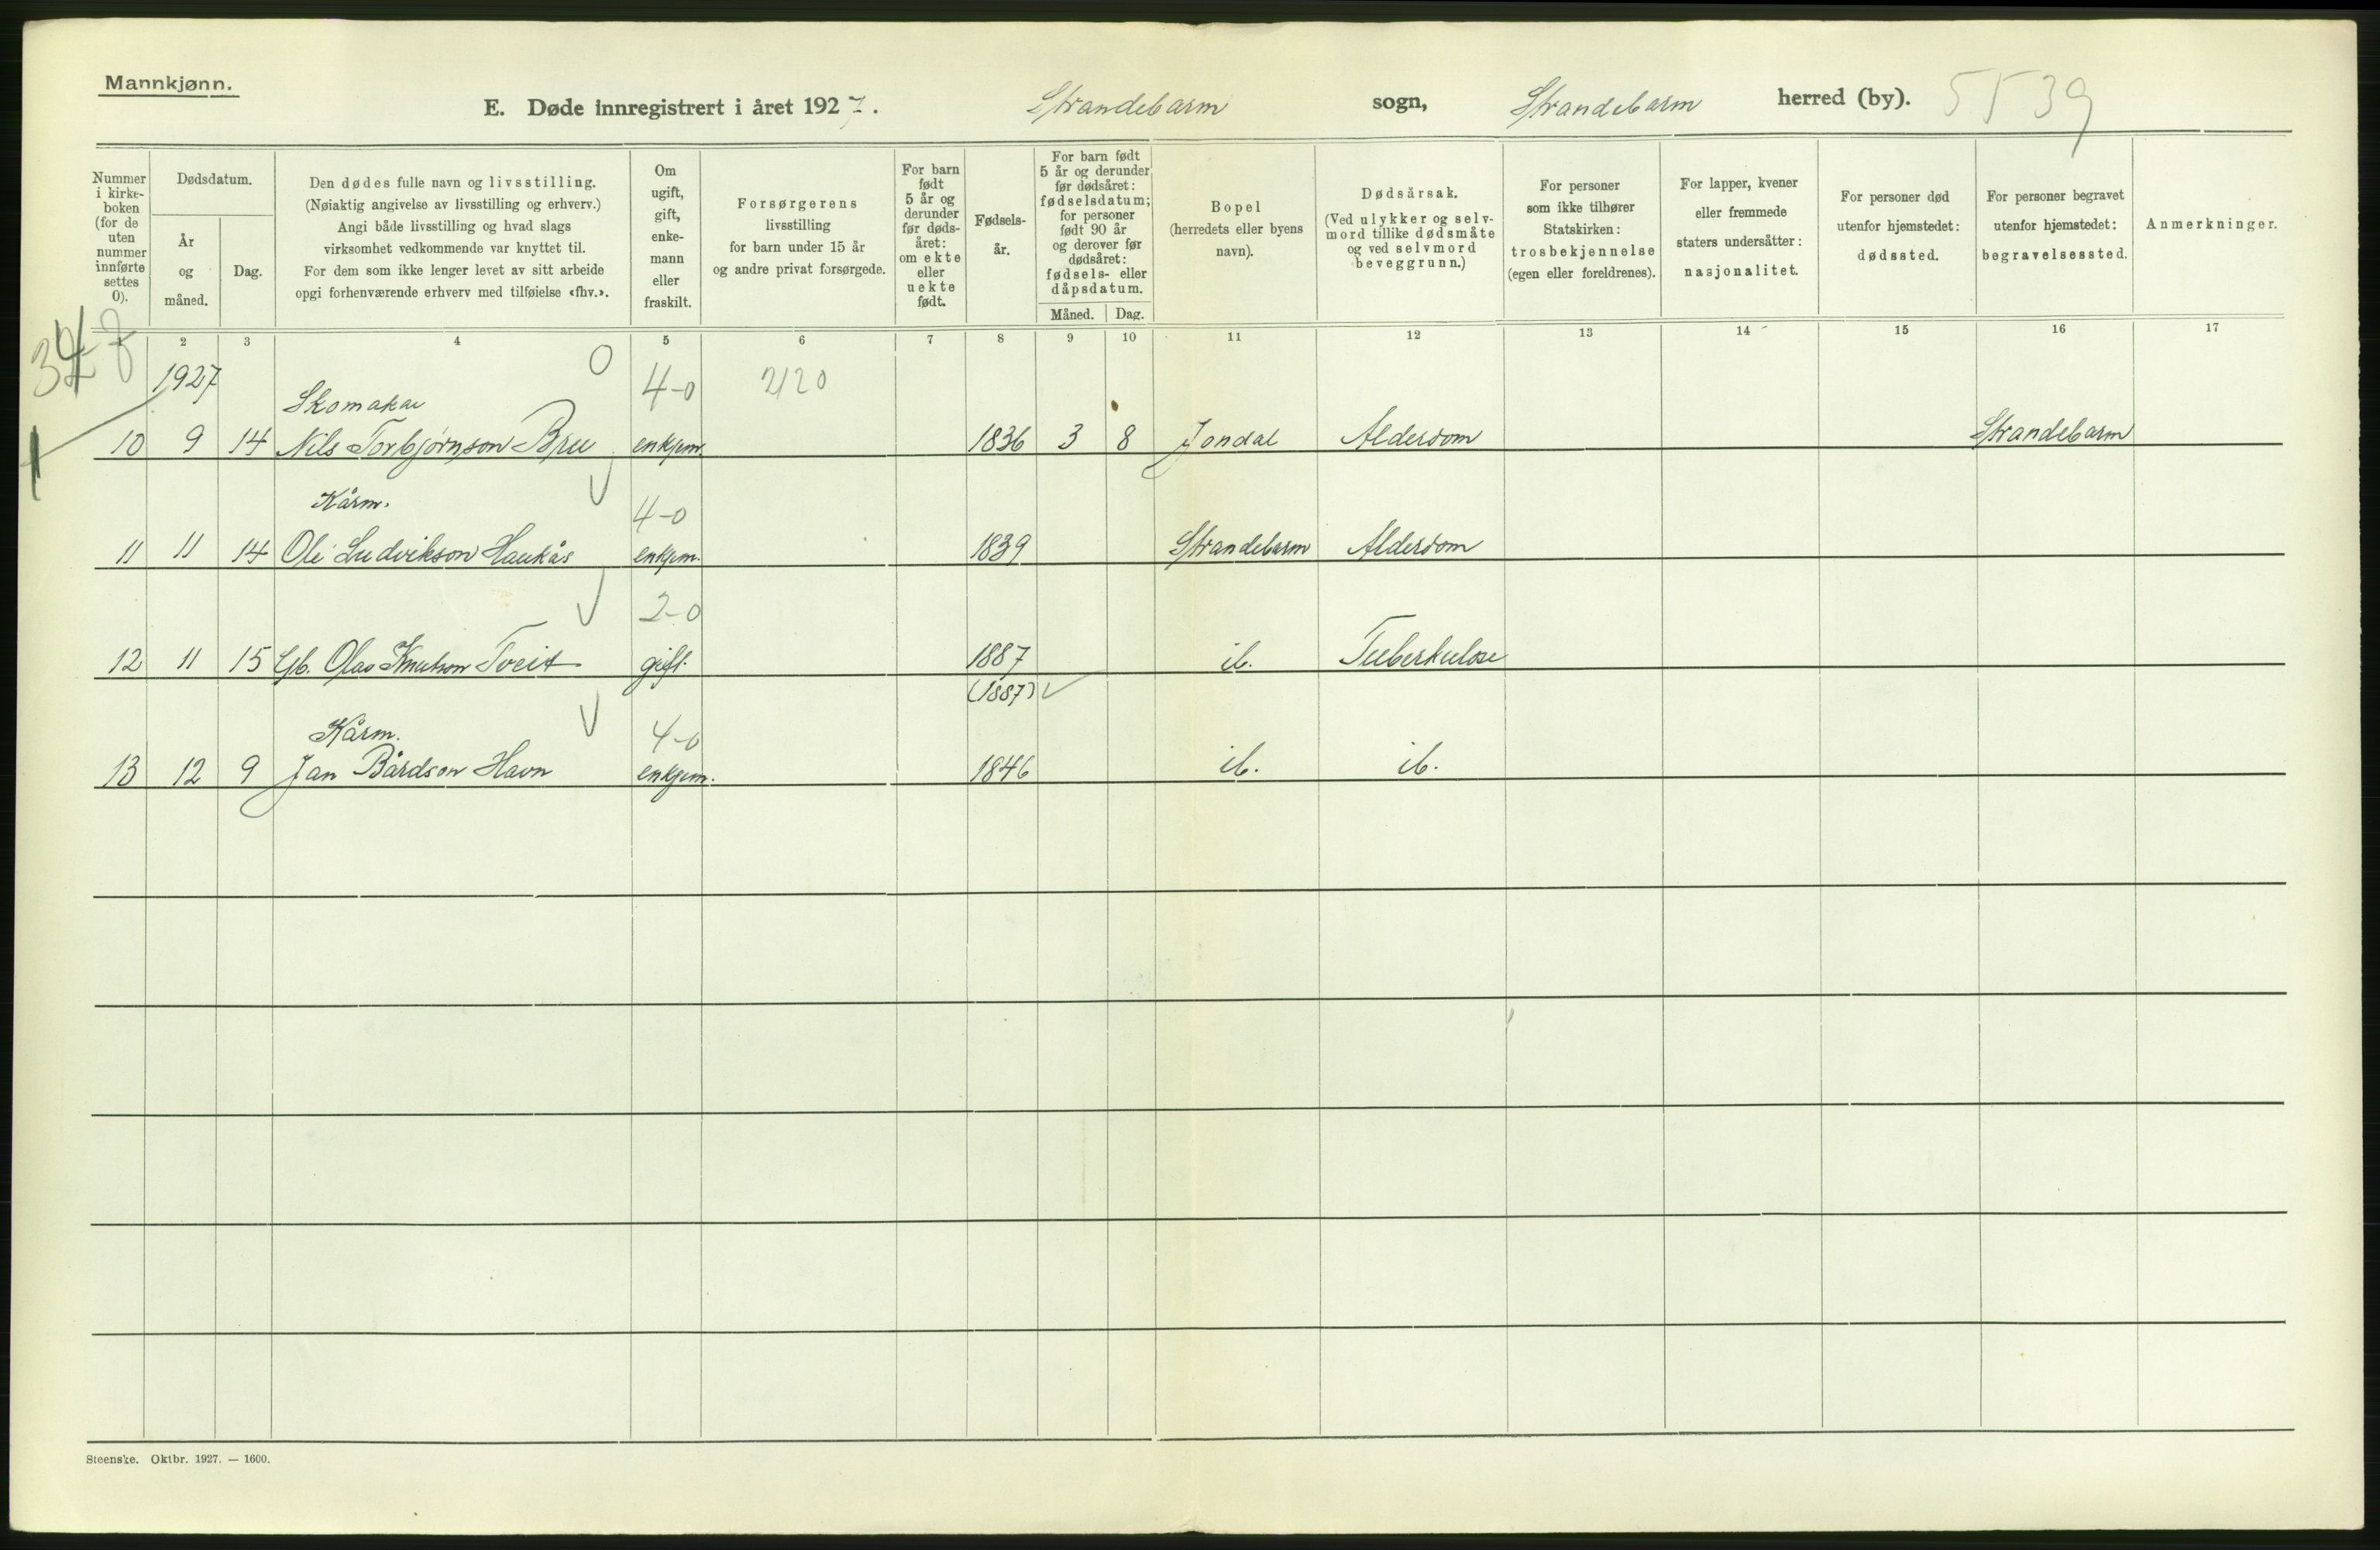 Mannkjønn.
E. Døde innregistrert i året 1927. Strandebarm sogn, Strandebarm herred (by). 5539
Nummer i kirke-boken (for de uten nummer innførte settes 0).
Dødsdatum.
År og måned.
Dag.
Den dødes fulle navn og livsstilling.
(Nøiaktig angivelse av livsstilling og erhverv.)
Angi både livsstilling og hvad slags
virksomhet vedkommende var knyttet til.
For dem som ikke lenger levet av sitt arbeide
opgi forhenværende erhverv med tilføielse «fhv.».
Om ugift, gift, enke-mann eller fraskilt.
Forsørgerens
livsstilling
for barn under 15 år
og andre privat forsørgede.
For barn født 5 år og derunder før døds-året: om ekte eller uekte født.
Fødsels-år.
For barn født
5 år og derunder
før dødsåret:
fødselsdatum;
for personer
født 90 år
og derover før
dødsåret:
fødsels- eller
dåpsdatum.
Måned. Dag.
Bopel
(herredets eller byens
navn).
Dødsårsak.
(Ved ulykker og selv-
mord tillike dødsmåte
og ved selvmord
beveggrunn.)
For personer
som ikke tilhører
Statskirken:
trosbekjennelse
(egen eller foreldrenes).
For lapper, kvener
eller fremmede
staters undersåtter:
nasjonalitet.
For personer død
utenfor hjemstedet:
dødssted.
For personer begravet
utenfor hjemstedet:
begravelsessted.
Anmerkninger.
2 3 4 5 6 7 8 9 10 11 12 13 14 15 16 17
1927 0 4-0 2120
Skomakar
10 9 14 Nils Torbjørnson Bru enkjem. 1836 3 8 Jondal Alderdom Strandebarm
Kårm. 4-0
11 11 14 Ole Ludvikson Haukås enkjem. 1839 Strandebarm Alderdom
2-0
12 11 15 Gb. Olav Knutson Tveit gift. 1887 ib. Tuberkulose
(1887)
Kårm. 4-0
13 12 9 Jan Bårdson Havn enkjem. 1846 ib. ib.
Steenske. Oktbr. 1927. — 1600.